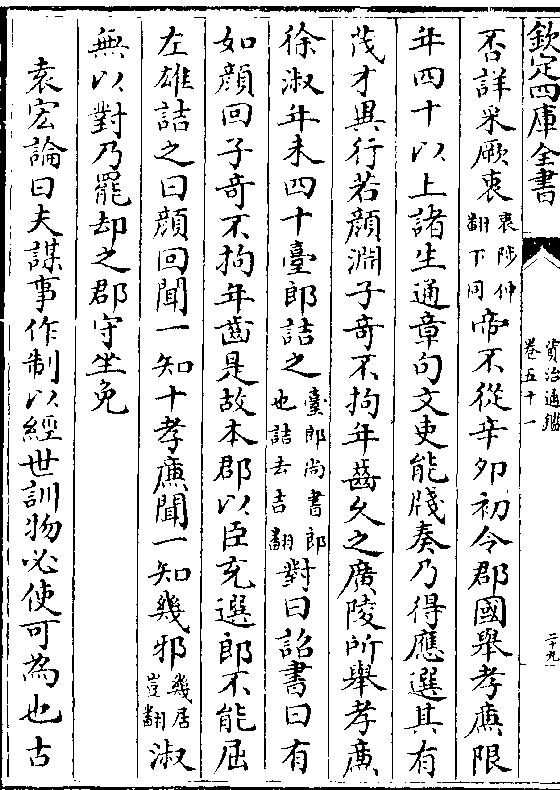 欽定四庫全書
資治通鑑
卷五十一
二十九
否詳采厥衷衷陟仲翻下同帝不從辛卯初令郡國舉孝廉限
年四十以上諸生通章句文吏能牋奏乃得應選其有
茂才異行若顔淵子奇不拘年齒久之廣陵所舉孝廉
徐淑年未四十臺郎詰之臺郎尚書郎也詰去吉翻對曰詔書曰有
如顔回子奇不拘年齒是故本郡以臣充選郎不能屈
左雄詰之曰顔回聞一知十孝廉聞一知幾邪幾居豈翻淑
無以對乃罷却之郡守坐免
袁宏論曰夫謀事作制以經世訓物必使可為也古